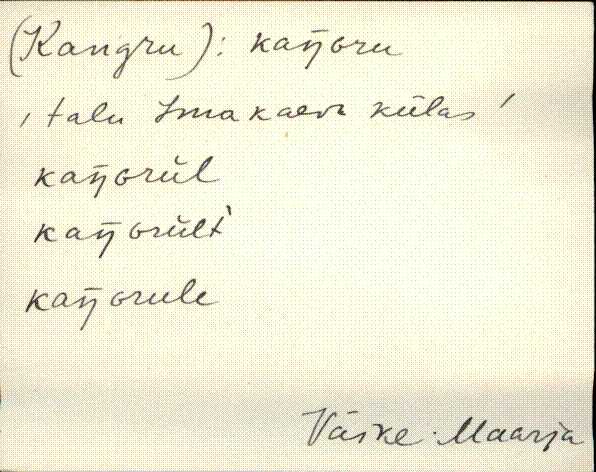 (Kangru): kaŋ̄ɢru
‚talu Imakaevu külas’
kaŋ̄ɢrūl
kaŋ̄ɢrūlt̀
kaŋ̄ɢrule
Väike-Maarja